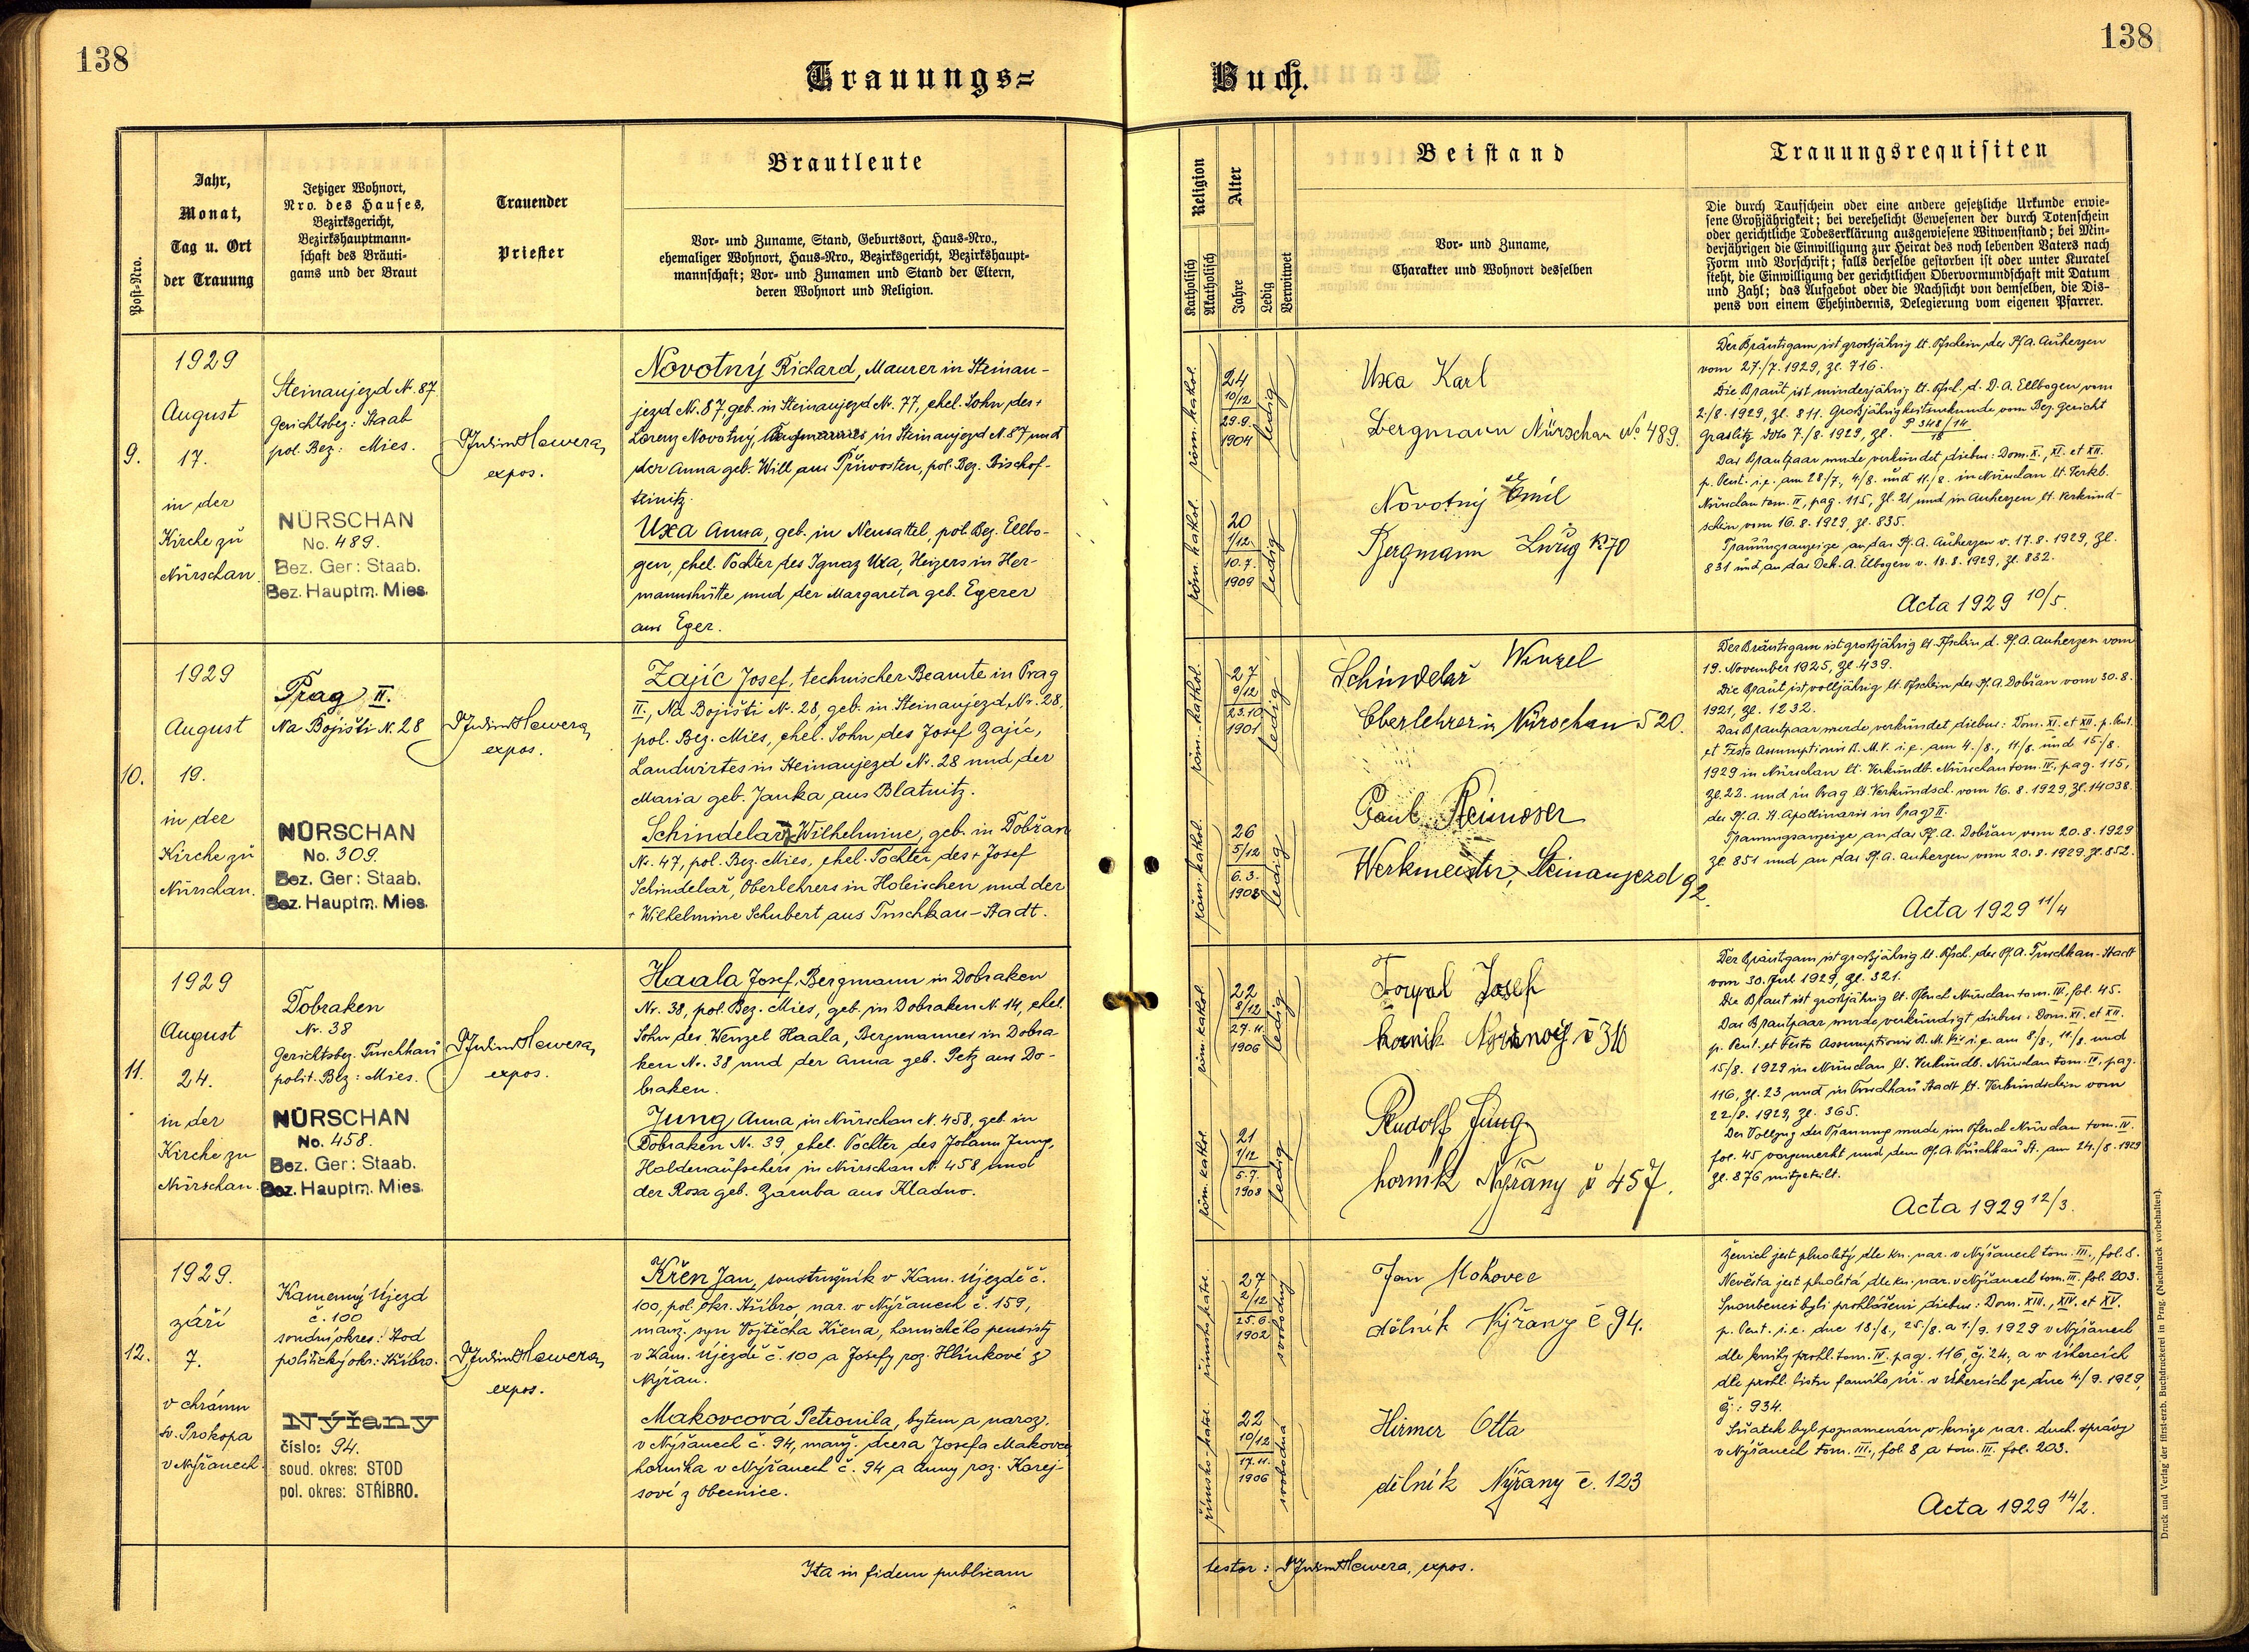 138
138
Trauungs=
Buch.
Post-Nro.
Jahr,
Monat,
Tag u. Ort
der Trauung
Jetziger Wohnort,
Nro. des Hauses,
Bezirksgericht,
Bezirkshauptmann-
schaft des Bräuti-
gams und der Braut
Trauender
Priester
Brautleute
Vor- und Zuname, Stand, Geburtsort, Haus-Nro.,
ehemaliger Wohnort, Haus-Nro., Bezirksgericht, Bezirkshaupt-
mannschaft; Vor- und Zunamen und Stand der Eltern,
deren Wohnort und Religion.
Religion
Katholisch
Akatholisch
Alter
Jahre
Ledig
Verwitwet
Beistand
Vor- und Zuname,
Charakter und Wohnort desselben
Trauungsrequisiten
Die durch Taufschein oder eine andere gesetzliche Urkunde erwie-
sene Großjährigkeit; bei verehelicht Gewesenen der durch Totenschein
oder gerichtliche Todeserklärung ausgewiesene Witwenstand; bei Min-
derjährigen die Einwilligung zur Heirat des noch lebenden Vaters nach
Form und Vorschrift; falls derselbe gestorben ist oder unter Kuratel
steht, die Einwilligung der gerichtlichen Obervormundschaft mit Datum
und Zahl; das Aufgebot oder die Nachsicht von demselben, die Dis-
pens von einem Ehehindernis, Delegierung vom eigenen Pfarrer.
9.
1929
August
17.
in der
Kirche zu
Nürschan.
Steinaujezd N. 87
Gerichtsbez: Staab
pol. Bez: Mies.
NÜRSCHAN
No. 489.
Bez. Ger: Staab.
Bez. Hauptm. Mies.
Hawera,
expos.
Novotný Richard, Maurer in Steinau-
jezd N. 87, geb. in Steinaujezd N. 77, ehel. Sohn des +
Lorenz Novotný, in Steinaujezd N. 87 und
der Anna geb. Will aus Přiwosten, pol. Bez. Bischof-
teinitz.
Uxa Anna, geb. in Neusattel, pol. Bez. Ellbo-
gen, ehel. Tochter des Ignaz Uxa, Heizers in Her-
mannshütte und der Margareta geb. Egerer
aus Eger.
röm. kathol.
24
10/12
29.9.
1904
ledig
röm. kathol.
20
1/12
10.7.
1909
ledig
Uxa Karl
Bergmann Nürschan No 489.
Novotný Emil
Bergmann K 70
Der Bräutigam ist großjährig lt. Tfschein des Pf. A. Auherzen
vom 27./7. 1929, Zl. 716.
Die Braut ist minderjährig lt. Tfsch. d. D. A. Ellbogen vom
2./8. 1929, Zl. 811. Großjährigkeitsurkunde vom Bez. Gericht
Graslitz dto 7./8. 1929, Zl. P 348/14
18
Das Brautpaar wurde verkündet diebus: Dom. X., XI. et XII.
p. Pent. i. e. am 28/7., 4/8. und 11./8. in Nürschan lt. Verkb.
Nürschan tom. IV, pag. 115, Zl. 21 und in Auherzen lt. Verkünd-
schein vom 16. 8. 1929, Zl. 835.
Trauungsanzeige an das Pf. A. Auherzen v. 17. 8. 1929, Zl.
831 und an das Dek. A. Elbogen v. 18. 8. 1929, Zl. 832.
Acta 1929 10/5.
10.
1929
August
19.
in der
Kirche zu
Nürschan.
Prag II.
Na Bojišti N. 28
NÜRSCHAN
No. 309.
Bez. Ger: Staab.
Bez. Hauptm. Mies.
Hawera,
expos.
Zajíc Josef, technischer Beamte in Prag
II., Na Bojišti N. 28, geb. in Steinaujezd, Nr. 28,
pol. Bez. Mies, ehel. Sohn des Josef Zajíc,
Landwirtes in Steinaujezd Nr. 28 und der
Maria geb. Janka aus Blatnitz.
Schindelarz Wilhelmine, geb. in Dobřan
Nr. 47, pol. Bez. Mies, ehel. Tochter des + Josef
Schindelař, Oberlehrers in Holeischen und der
+ Wilhelmine Schubert aus Tuschkau-Stadt.
röm. kathol.
27
9/12
23.10
1901
ledig
röm. kathol.
26
5/12
6.3.
1903
ledig
Schindelař Wenzel
Oberlehrer in Nürschan 520.
Paul Steinoser
Werkmeister, Steinaujezd 92.
Der Bräutigam ist großjährig lt. Tfschein d. Pf. A. Auherzen vom
19. November 1925, Zl. 439.
Die Braut ist volljährig lt. Tfschein des Pf. A. Dobřan vom 30. 8.
1921, Zl. 1232.
Das Brautpaar wurde verkündet diebus: Dom. XI. et XII. p. Pent.
et Festo Assumptionis B. M. V. i. e. am 4./8., 11/8. und 15./8.
1929 in Nürschan lt. Verkündb. Nürschan tom. IV., pag. 115,
Zl. 22. und in Prag lt. Verkündsch. vom 16. 8. 1929, Zl. 14038.
des Pf. A. St. Apollinaris in Prag II.
Trauungsanzeige an das Pf. A. Dobřan vom 20. 8. 1929
Zl. 851 und an das Pf. A. Auherzen vom 20. 8. 1929, Zl. 852.
Acta 1929 11/4
11.
1929
August
24.
in der
Kirche zu
Nürschan.
Dobraken
Nr. 38
Gerichtsbez. Tuschkau
polit. Bez: Mies.
NÜRSCHAN
No. 458.
Bez. Ger: Staab.
Bez. Hauptm. Mies.
Hawera,
expos.
Haala Josef, Bergmann in Dobraken
Nr. 38, pol. Bez. Mies, geb. in Dobraken N. 14, ehel.
Sohn des Wenzel Haala, Bergmannes in Dobra-
ken Nr. 38 und der Anna geb. Petz aus Do-
braken.
Jung Anna, in Nürschan N. 458, geb. in
Dobraken Nr. 39, ehel. Tochter des Johann Jung,
Haldenaufsehers in Nürschan N. 458 und
der Rosa geb. Zaruba aus Kladno.
röm. kathol.
22
8/12
27.11.
1906
ledig
röm. kathol.
21
1/12
5.7.
1908
ledig
Josef
horník č 310
Rudolf Jung
horník Nýřany č 457.
Der Bräutigam ist großjährig lt. Tfsch. des Pf. A. Tuschkau-Stadt
vom 30. Juli 1929, Zl. 321.
Die Braut ist großjährig lt. Tfbuch Nürschan tom. IV. fol. 45.
Das Brautpaar wurde verkündigt diebus: Dom. XI. et XII.
p. Pent. et Festo Assumptionis B. M. V. i. e. am 8/8., 11/8. und
15/8. 1929 in Nürschan lt. Verkündb. Nürschan tom. IV., pag.
116, Zl. 23 und in Tuschkau Stadt lt. Verkündschein vom
22/8. 1929, Zl. 365.
Der Vollzug der Trauung wurde im Tfbuch Nürschan tom. IV.
fol. 45 vorgemerkt und dem Pf. A. Tuschkau St. am 24./8. 1929
Zl. 876 mitgeteilt.
Acta 1929 12/3.
12.
1929.
září
7.
v chrámu
sv. Prokopa
v Nýřanech.
Kamenný Újezd
č. 100
soudní okres: Stod
politický okr.: Stříbro.
Nýřany
číslo: 94.
soud. okres: STOD
pol. okres: STŘÍBRO.
Hawera,
expos.
Křen Jan, soustružník v Kam. Újezdě č.
100, pol. okr. Stříbro, nar. v Nýřanech č. 159,
manž. syn Vojtěcha Křena, hornického pensisty
v Kam. Újezdě č. 100 a Josefy roz. Hlinkové z
Nýřan.
Makovcová Petronila, bytem a naroz.
v Nýřanech č. 94, manž. dcera Josefa Makovce,
horníka v Nýřanech č. 94 a Anny roz. Korej-
sové z Obecnice.
římsko-katol.
27
2/12
25.6.
1902
svobodný
římsko-katol.
22
10/12
17.11.
1906
svobodná
Jan Mokovec
dělník Nýřany č 94.
Hirmer Otta
dělník Nýřany č. 123
Ženich jest plnoletý dle kn. nar. v Nýřanech tom. III., fol. 8.
Nevěsta jest plnoletá dle kn. nar. v Nýřanech tom. III. fol. 203.
Snoubenci byli prohlášeni diebus: Dom. XIII., XIV. et XV.
p. Pent. i. e. dne 18./8., 25./8. a 1./9. 1929 v Nýřanech
dle knihy prohl. tom. IV. pag. 116, čj. 24., a v Úhercích
dle prohl. listu farního úř. v Úhercích ze dne 4./9. 1929,
čj.: 934.
Sňatek byl poznamenán v knize nar. duch. správy
v Nýřanech tom. III., fol. 8 a tom. III. fol. 203.
Acta 1929 14/2.
Ita in fidem publicam
testor: Hawera, expos.
Druck und Verlag der fürst-erzb. Buchdruckerei in Prag. (Nachdruck vorbehalten).